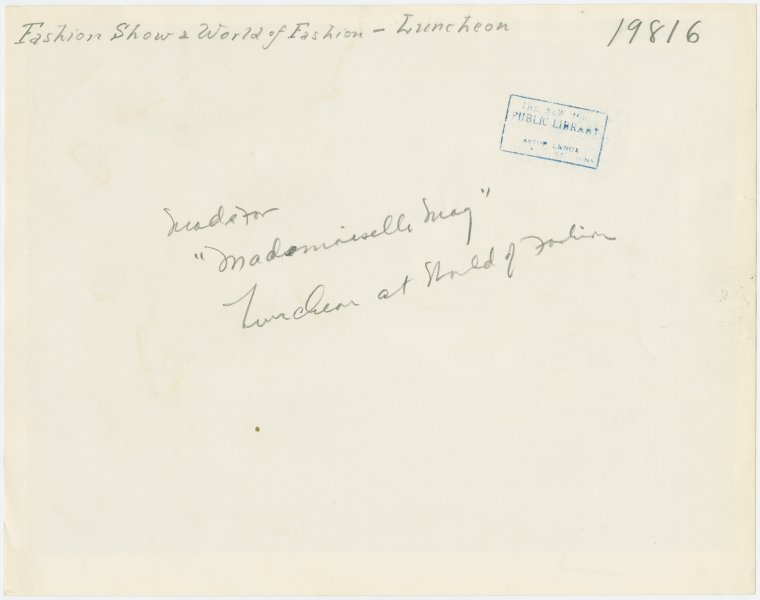 Fashion Show & World of Fashion - Luncheon
19816
THE NEW
PUBLIC LIBRARY
ASTOR LENOX
Made for
"Mademoiselle Mag"
Luncheon at World of Fashion